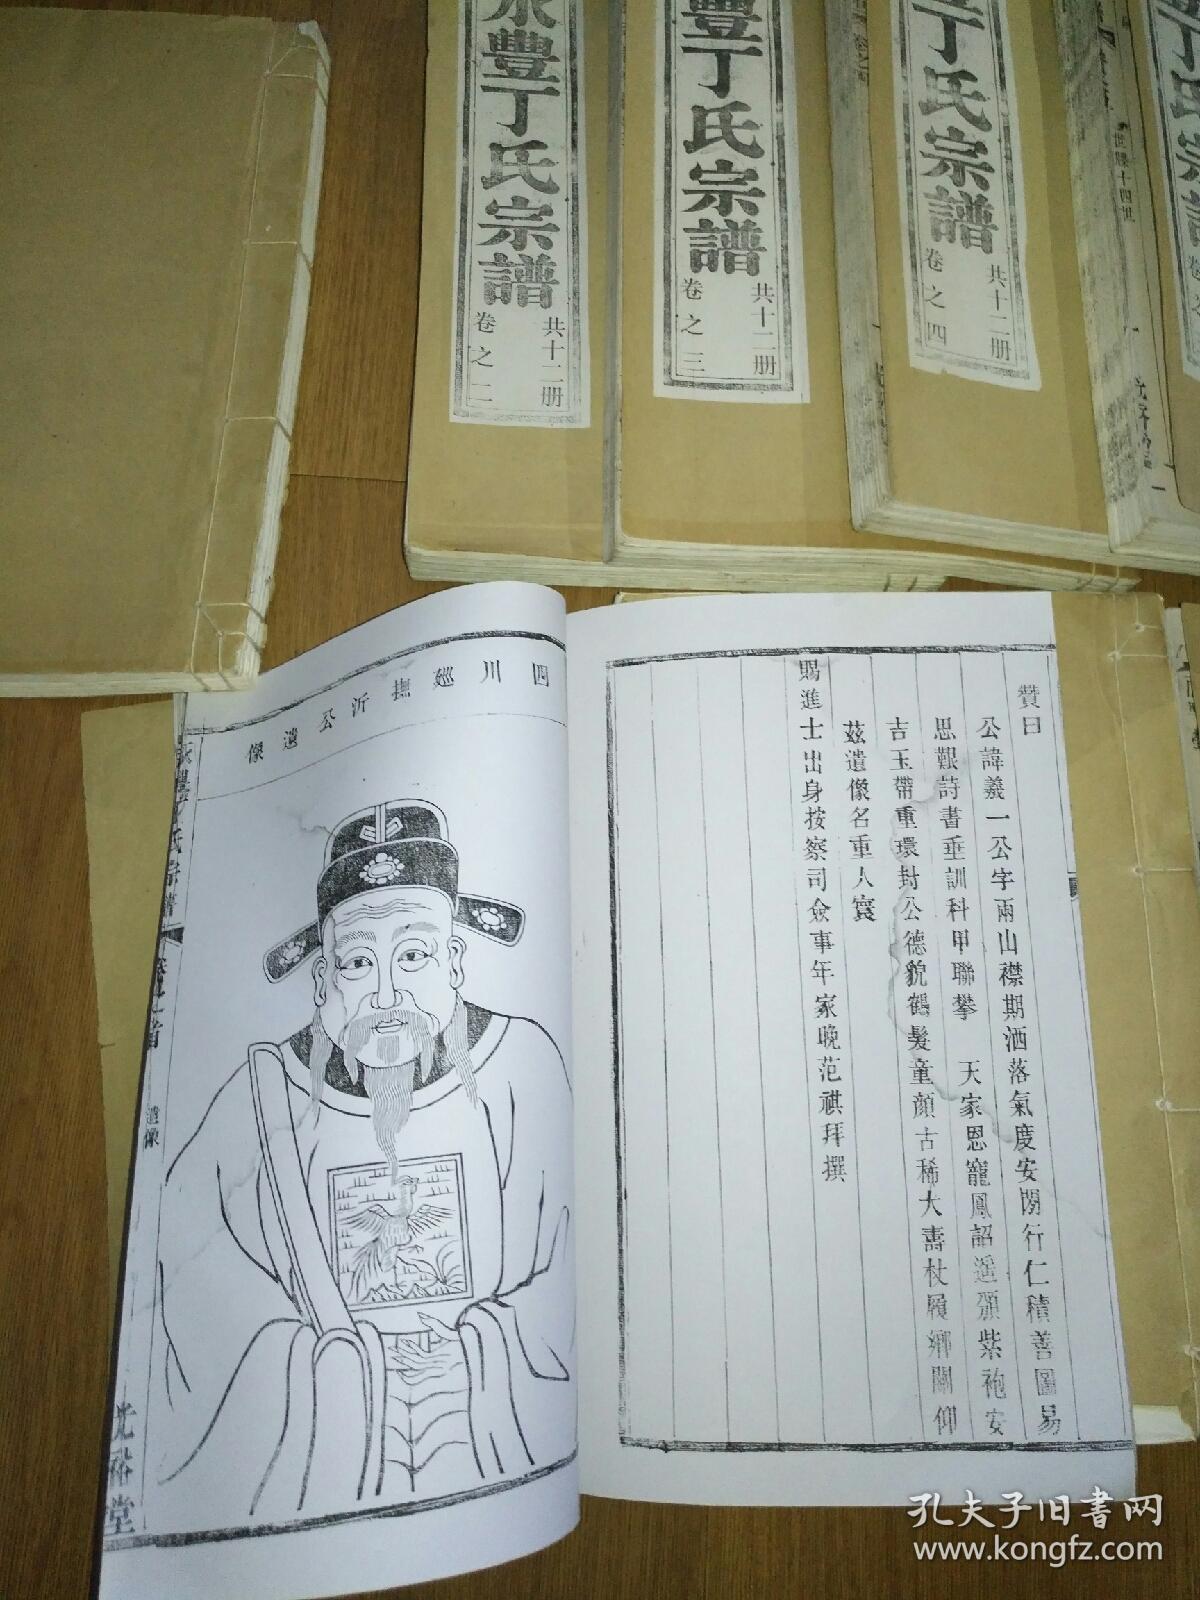 永豐丁氏宗譜
共十二册
卷之二
豐丁氏宗譜
共十二册
卷之三
丁氏宗譜
共十二册
卷之四
丁氏宗譜
世縣十四世
贊曰
公諱義一公字兩山襟期洒落氣度安閒行仁積善圖易
思艱詩書垂訓科甲聯攀 天家恩寵鳳詔遥頒紫袍安
吉玉帶重環封公德貌鶴髮童顔古稀大壽杖履鄉關仰
兹遺像名重人寰
賜進士出身按察司僉事年家晚范祺拜撰
四川廵撫沂公遺像
永豐丁氏宗譜
卷之首
遺像
光裕堂
孔夫子旧书网
www.kongfz.com